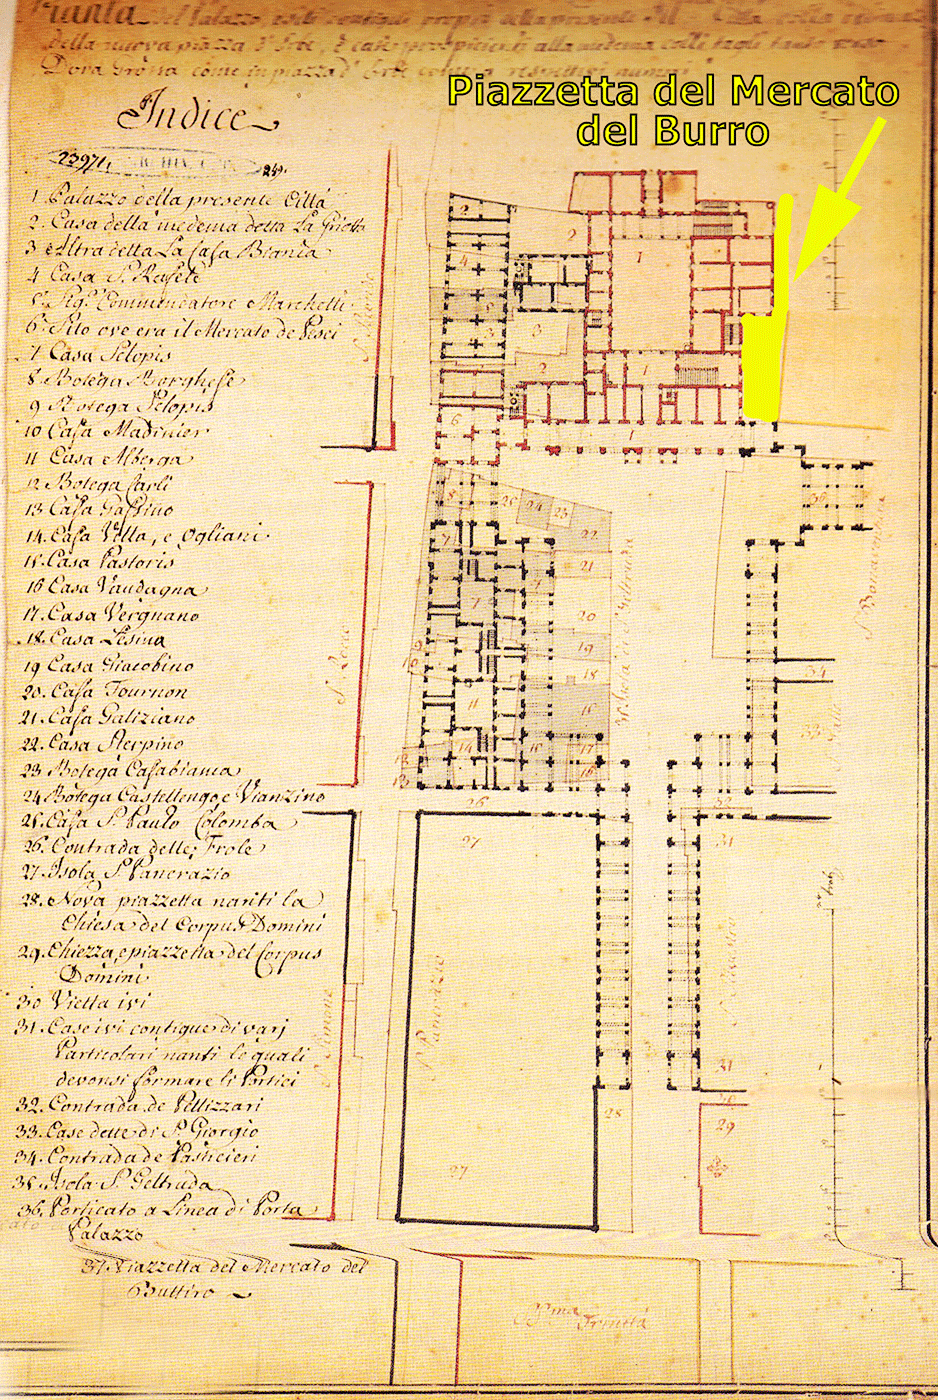 Pianta del Palazzo,
della nuova piazza d'Erbe, è case prospicienti alla medema
Dora Grossa come in piazza d'Erbe
Piazzetta del Mercato
del Burro
Indice
23971
1. Palazzo della presente Città
2. Casa della medema detta La Giotta
3 Altra detta La Casa Bianca
4 Casa S. Rafele
5. Sig.r Commendatore Marchelli
6. Silo ove era il Mercato de Pesci
7 Casa Sclopis
8. Botega Borghese
9 Botega Sclopis
10 Casa Madrinier
11 Casa Alberga
12 Botega Carli
13 Casa Gastino
14. Casa Villa, e Ogliani
15. Casa Pastoris
16 Casa Vaudagna
17. Casa Vergnano
18. Casa Lesina
19 Casa Giacobino
20. Casa Tournon
21. Casa Galiziano
22. Casa Sterpino
23 Botega Casabianca
24 Botega Castellengo, e Vianzino
25. Casa S. Paulo Colomba
26. Contrada delle Frole
27. Isola S. Pancrazio
28. Nova piazzetta nanti la
Chiesa del Corpus Domini
29. Chiezza, e piazzetta del Corpus
Domini
30 Vietta ivi
31. Case ivi contigue di varj
Particolari nanti le quali
devonsi formare li Portici
32. Contrada de Pellizzari
33. Case dette di S. Giorgio
34. Contrada de Pasticieri
35. Isola S. Geltruda
36. Porticato a Linea di Porta
Palazzo
37. Piazzetta del Mercato del
Buttiro
1
2
4
3
2
1
6
1
36
8
25
24
23
22
7
21
20
19
18
11
14
16
17
34
33
26
27
31
S. Pancrazio
S. Simone
31
28
29
27
Trinità